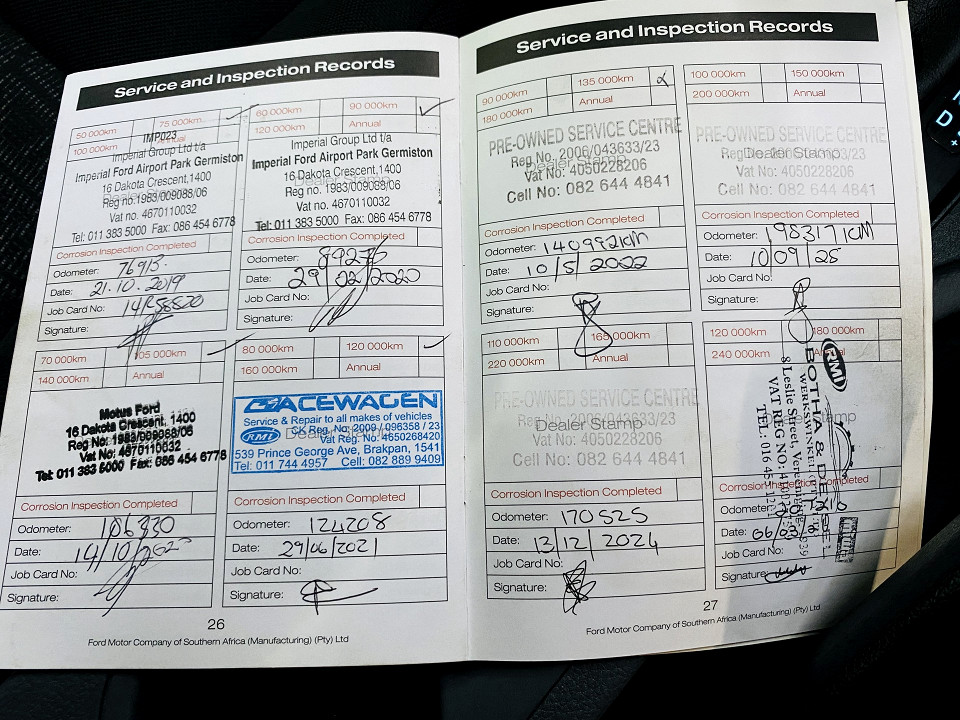 Service and Inspection Records
50 000km 75 000km
100 000km Annual
IMP023
Imperial Group Ltd t/a
Imperial Ford Airport Park Germiston
16 Dakota Crescent,1400
Dealer Stamp
Reg no.1983/009088/06
Vat no. 4670110032
Tel: 011 383 5000 Fax: 086 454 6778
Corrosion Inspection Completed
Odometer: 76913
Date: 21.10.2019
Job Card No:
Signature:
60 000km 90 000km ✓
120 000km Annual
Imperial Group Ltd t/a
Imperial Ford Airport Park Germiston
16 Dakota Crescent,1400
Dealer Stamp
Reg no. 1983/009088/06
Vat no. 4670110032
Tel: 011 383 5000 Fax: 086 454 6778
Corrosion Inspection Completed
Odometer: 89276
Date: 29/02/2020
Job Card No:
Signature:
70 000km 105 000km
140 000km Annual
Motus Ford
16 Dakota Crescent, 1400
Reg No: 1983/009088/06
Vat No: 4670110032
Tel: 011 383 5000 Fax: 086 454 6778
Corrosion Inspection Completed
Odometer: 106330
Date: 14/10/
Job Card No:
Signature:
80 000km 120 000km
160 000km Annual
ACEWAGEN
Service & Repair to all makes of vehicles
CK Reg. No: 2009 / 096358 / 23
RMI Dealer Stamp
Vat Reg. No: 4650268420
539 Prince George Ave, Brakpan, 1541
Tel: 011 744 4957 Cell: 082 889 9409
Corrosion Inspection Completed
Odometer: 124208
Date: 29/06/2021
Job Card No:
Signature:
26
Ford Motor Company of Southern Africa (Manufacturing) (Pty) Ltd
Service and Inspection Records
90 000km 135 000km
180 000km Annual
PRE-OWNED SERVICE CENTRE
Reg No. 2006/043633/23
Dealer Stamp
Vat No: 4050228206
Cell No: 082 644 4841
Corrosion Inspection Completed
Odometer: 140992km
Date: 10/5/2022
Job Card No:
Signature:
100 000km 150 000km
200 000km Annual
PRE-OWNED SERVICE CENTRE
Reg No. 2006/043633/23
Dealer Stamp
Vat No: 4050228206
Cell No: 082 644 4841
Corrosion Inspection Completed
Odometer: 198317KM
Date: 10/09/25
Job Card No:
Signature:
110 000km 165 000km
220 000km Annual
PRE-OWNED SERVICE CENTRE
Reg No. 2006/043633/23
Dealer Stamp
Vat No: 4050228206
Cell No: 082 644 4841
Corrosion Inspection Completed
Odometer: 170525
Date: 13/12/2024
Job Card No:
Signature:
120 000km 180 000km
240 000km Annual
RMI
BOTHA &
8 Leslie Street,
VAT REG NO:
TEL: 016 45
Dealer Stamp
Corrosion Inspection Completed
Odometer:
Date:
Job Card No:
Signature:
27
Ford Motor Company of Southern Africa (Manufacturing) (Pty) Ltd